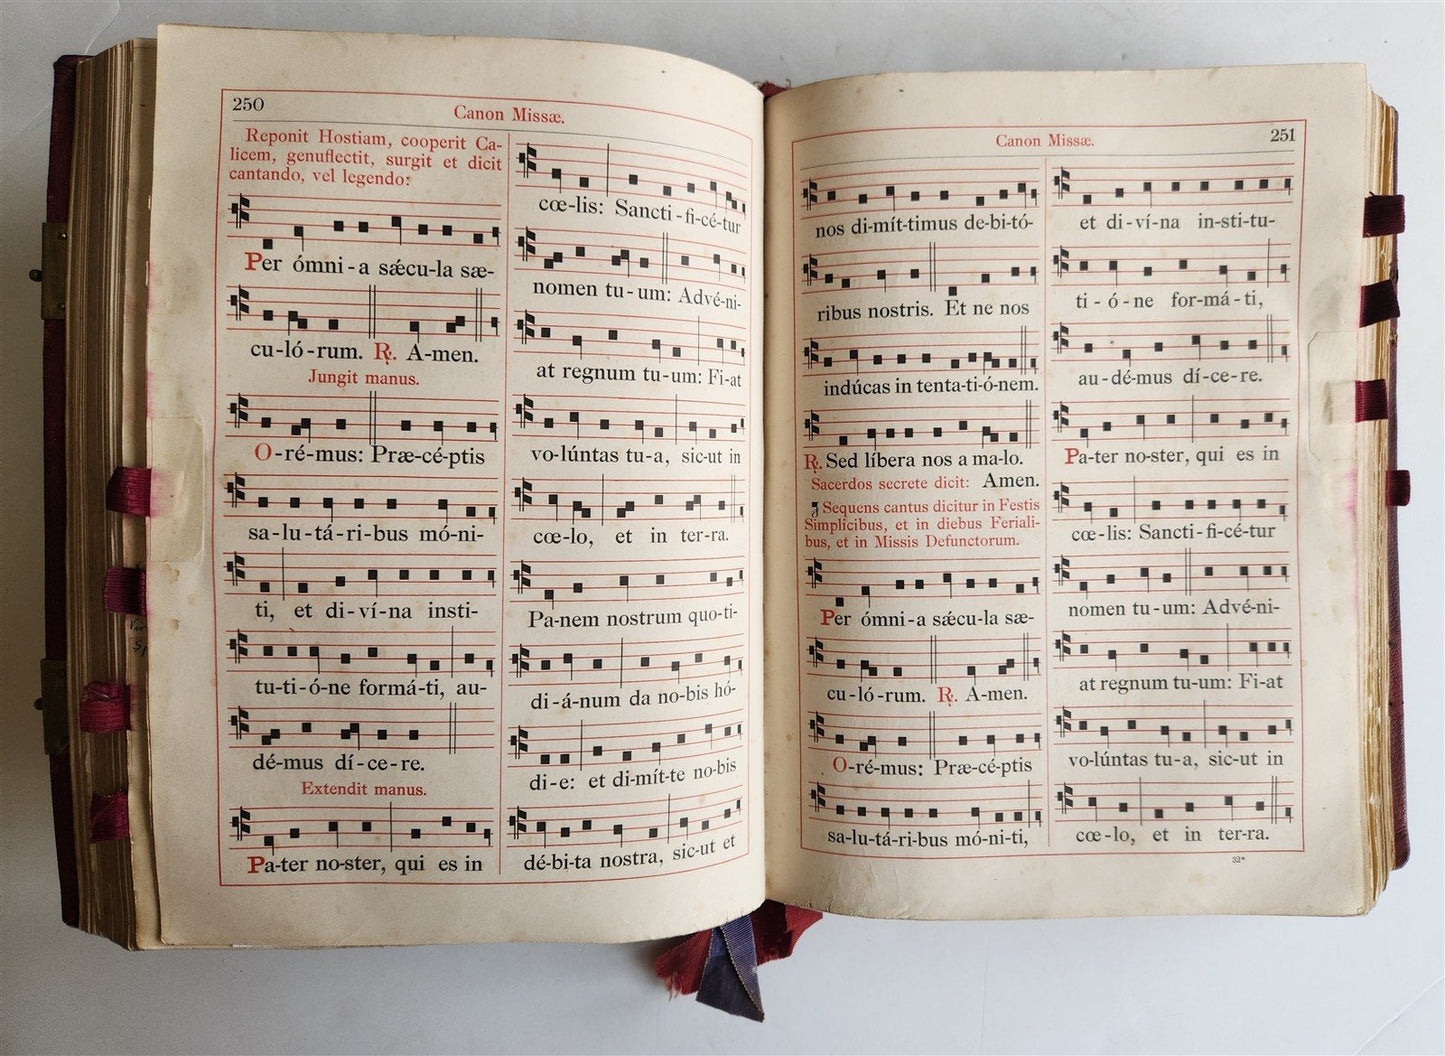 250
Canon Missæ.
Reponit Hostiam, cooperit Ca-
licem, genuflectit, surgit et dicit
cantando, vel legendo:
Per ómni-a sǽcu-la sæ-
cu-ló-rum. ℟. A-men.
Jungit manus.
O-ré-mus: Præ-cé-ptis
sa-lu-tá-ri-bus mó-ni-
ti, et di-ví-na insti-
tu-ti-ó-ne formá-ti, au-
dé-mus dí-ce-re.
Extendit manus.
Pa-ter no-ster, qui es in
cœ-lis: Sancti-fi-cé-tur
nomen tu-um: Advé-ni-
at regnum tu-um: Fi-at
vo-lúntas tu-a, sic-ut in
cœ-lo, et in ter-ra.
Pa-nem nostrum quo-ti-
di-á-num da no-bis hó-
di-e: et di-mít-te no-bis
dé-bi-ta nostra, sic-ut et
Canon Missæ.
251
nos di-mít-timus de-bi-tó-
ribus nostris. Et ne nos
indúcas in tenta-ti-ó-nem.
℟. Sed líbera nos a ma-lo.
Sacerdos secrete dicit: Amen.
Sequens cantus dicitur in Festis
Simplicibus, et in diebus Feriali-
bus, et in Missis Defunctorum.
Per ómni-a sǽcu-la sæ-
cu-ló-rum. ℟. A-men.
O-ré-mus: Præ-cé-ptis
sa-lu-tá-ri-bus mó-ni-ti,
et di-ví-na in-sti-tu-
ti-ó-ne for-má-ti,
au-dé-mus dí-ce-re.
Pa-ter no-ster, qui es in
cœ-lis: Sancti-fi-cé-tur
nomen tu-um: Advé-ni-
at regnum tu-um: Fi-at
vo-lúntas tu-a, sic-ut in
cœ-lo, et in ter-ra.
32*